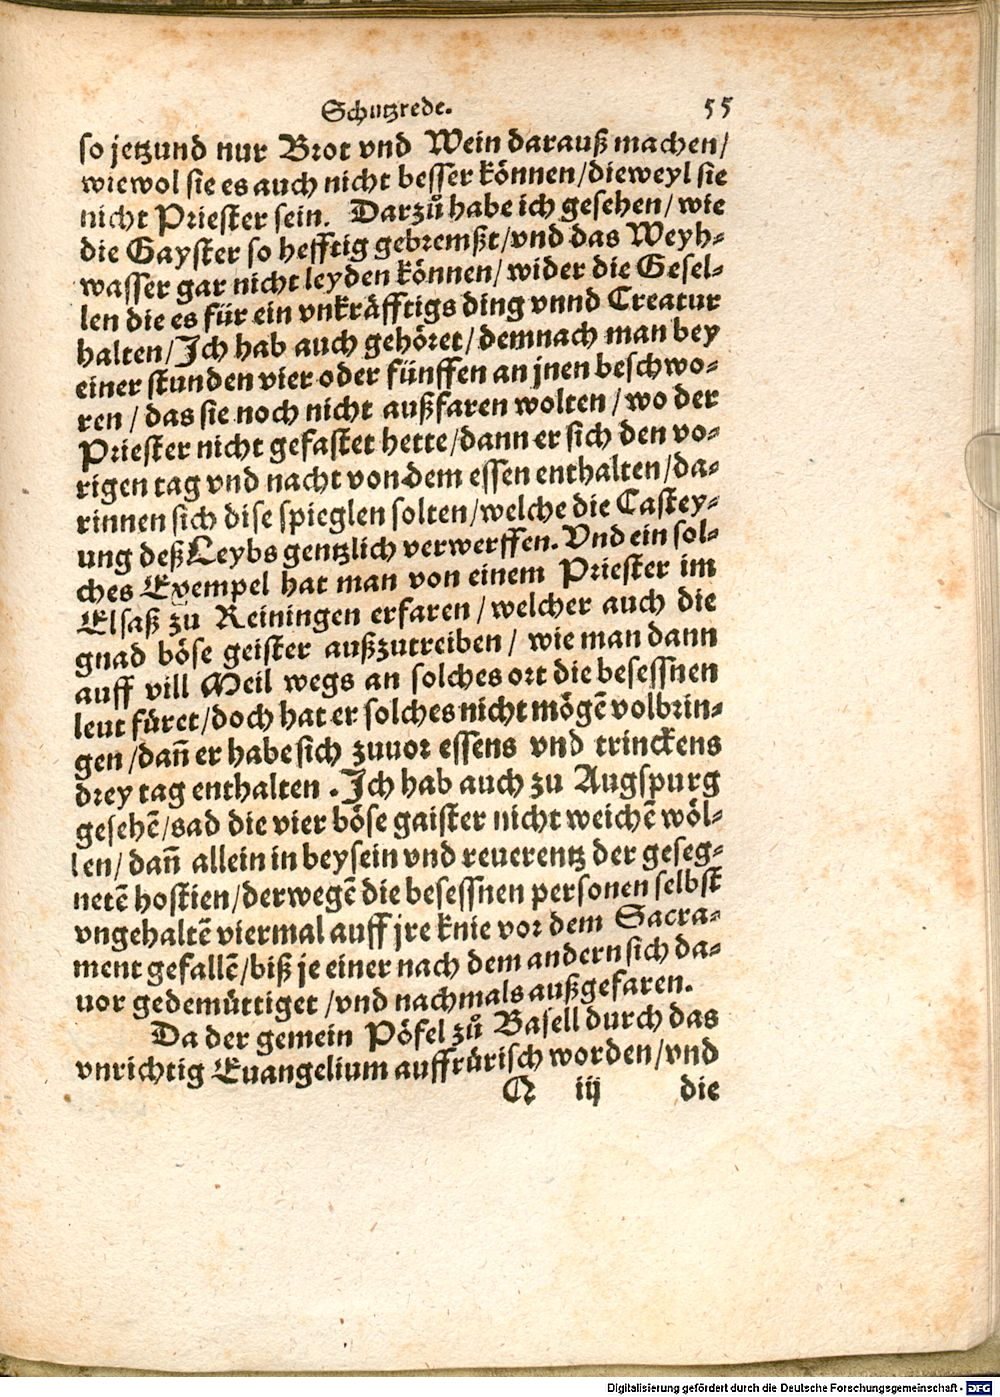 Schutzrede. 55
so jetzund nur Brot vnd Wein darauß machen/
wiewol sie es auch nicht besser können/dieweyl sie
nicht Priester sein. Darzů habe ich gesehen/ wie
die Gayster so hefftig gebremßt/vnd das Weyh-
wasser gar nicht leyden können/ wider die Gesel-
len die es für ein vnkräfftigs ding vnnd Creatur
halten/Ich hab auch gehöret/ demnach man bey
einer stunden vier oder fünffen an jnen beschwo-
ren / das sie noch nicht außfaren wolten / wo der
Priester nicht gefastet hette/dann er sich den vo-
rigen tag vnd nacht von dem essen enthalten/da-
rinnen sich dise spieglen solten/welche die Castey-
ung deß Leybs gentzlich verwerffen. Vnd ein sol-
ches Exempel hat man von einem Priester im
Elsaß zu Reiningen erfaren / welcher auch die
gnad böse geister außzutreiben / wie man dann
auff vill Meil wegs an solches ort die besessnen
leut füret/doch hat er solches nicht mögẽ volbrin-
gen /dañ er habe sich zuuor essens vnd trinckens
drey tag enthalten . Ich hab auch zu Augspurg
gesehẽ/sad die vier böse gaister nicht weichẽ wöl-
len/ dañ allein in beysein vnd reuerentz der geseg-
netẽ hostien/derwegẽ die besessnen personen selbst
vngehaltẽ viermal auff jre knie vor dem Sacra-
ment gefallẽ/biß je einer nach dem andern sich da-
uor gedemüttiget /vnd nachmals außgefaren.
Da der gemein Pöfel zů Basell durch das
vnrichtig Euangelium auffrürisch worden/vnd
Q iij die
Digitalisierung gefördert durch die Deutsche Forschungsgemeinschaft - DFG